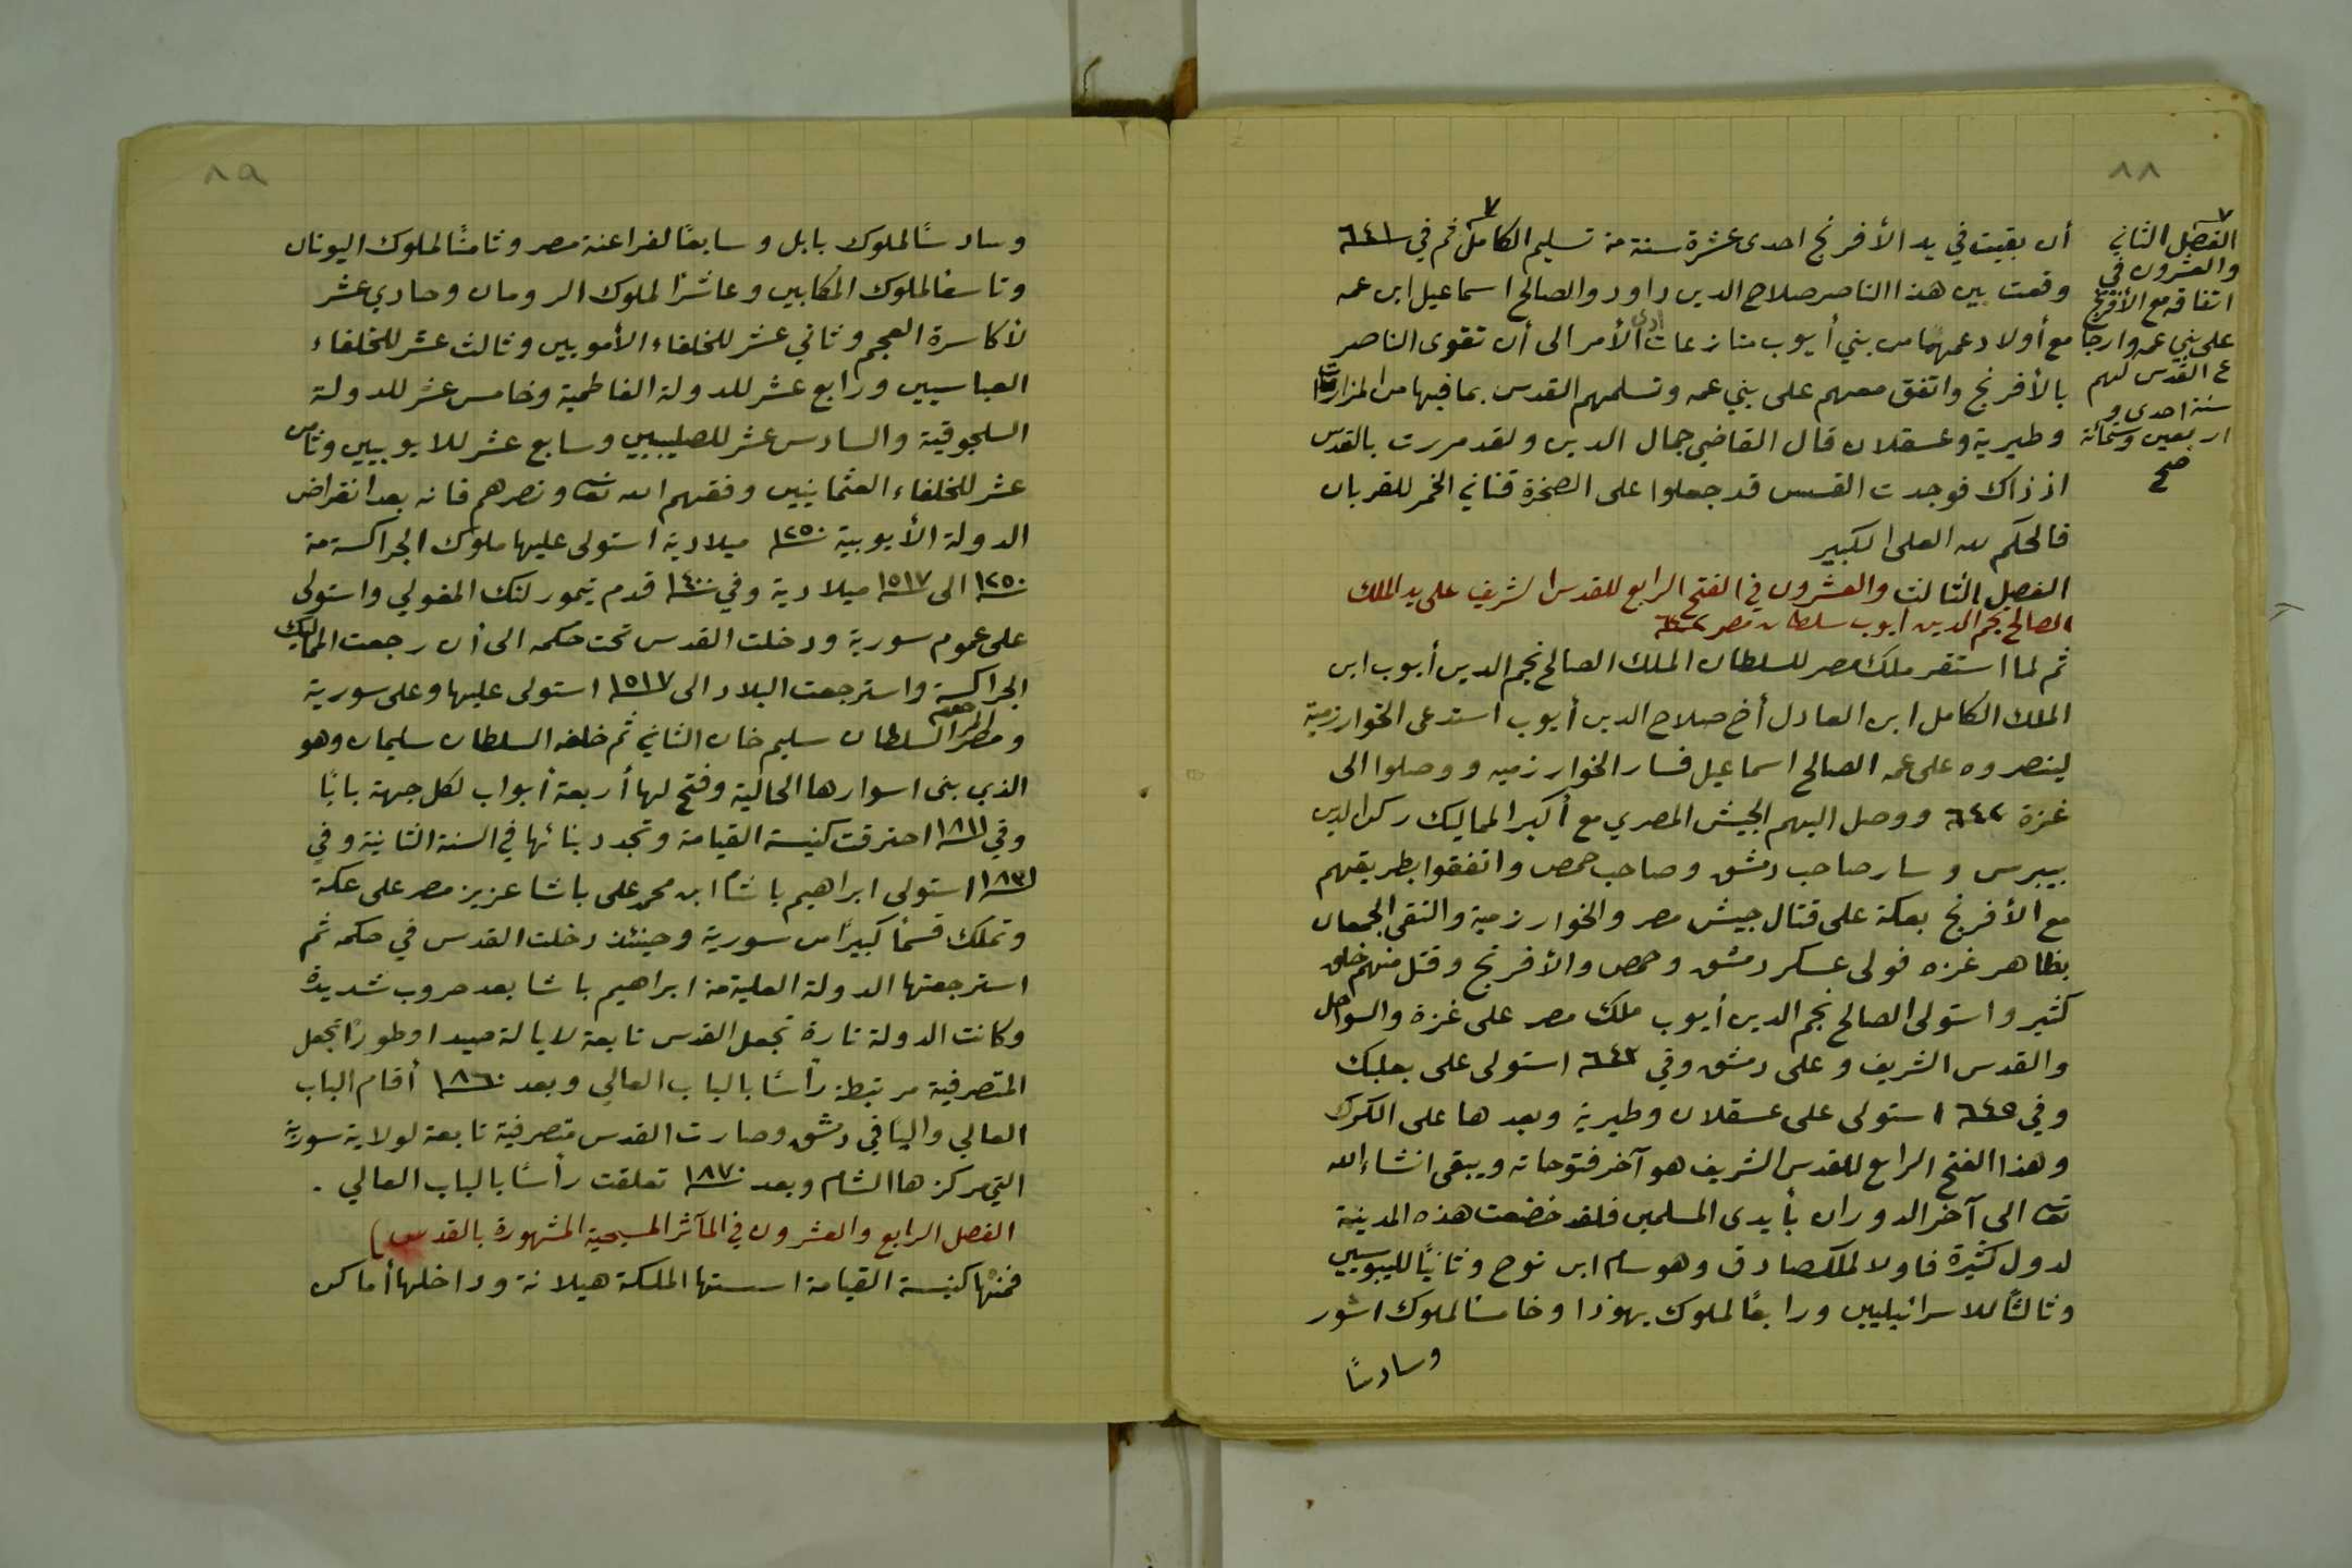 ٨٨
الفصل الثاني
والعشرون في
اتفاقه مع الأفرنج
على بني عمه وارجا
ع القدس لهم
سنة احدى و
اربعين وستمائة
صح
أن بقيت في يد الأفرنج احدى عشرة سنة من تسليم الكامل ثم في ٦٤١
وقعت بين هذا الناصر صلاح الدين داود والصالح اسماعيل ابن عمه
مع أولاد عمهما من بني أيوب منازعات أدى الأمر الى أن تقوى الناصر
بالأفرنج واتفق معهم على بني عمه وتسلمهم القدس بما فيها من المزارات
وطبرية وعسقلان قال القاضي جمال الدين ولقد مررت بالقدس
اذ ذاك فوجدت القسس قد جعلوا على الصخرة قناني الخمر للقربان
فالحكم لله العلى الكبير
الفصل الثالث والعشرون في الفتح الرابع للقدس الشريف على يد الملك
الصالح نجم الدين ايوب سلطان مصر ٦٤٢
ثم لما استقر ملك مصر للسلطان الملك الصالح نجم الدين أيوب ابن
الملك الكامل ابن العادل أخ صلاح الدين أيوب استدعى الخوارزمية
لينصروه على عمه الصالح اسماعيل فسار الخوارزميه ووصلوا الى
غزة ٦٤٢ ووصل اليهم الجيش المصري مع أكبر المماليك ركن الدين
بيبرس وسار صاحب دمشق وصاحب حمص واتفقوا بطريقهم
مع الأفرنج بعكة على قتال جيش مصر والخوارزمية والتقى الجمعان
بظاهر غزه فولى عسكر دمشق وحمص والأفرنج وقتل منهم خلق
كثير واستولى الصالح نجم الدين أيوب ملك مصر على غزة والسواحل
والقدس الشريف وعلى دمشق وفي ٦٤٣ استولى على بعلبك
وفي ٦٤٥ استولى على عسقلان وطبرية وبعدها على الكرك
وهذا الفتح الرابع للقدس الشريف هو آخر فتوحاته ويبقى انشاء الله
تعا الى آخر الدوران بأيدى المسلمين فلقد خضعت هذه المدينة
لدول كثيرة فاولا لملكصادق وهو سام ابن نوح وثانيًا لليبوسيين
وثالثًا للاسرائيليين ورابعًا لملوك يهوذا وخامسًا لملوك اشور
وسادسًا
٨٩
وسادسًا لملوك بابل وسابعًا لفراعنة مصر وثامنًا لملوك اليونان
وتاسعًا لملوك المكابيين وعاشرًا لملوك الرومان وحادي عشر
لأكاسرة العجم وثاني عشر للخلفاء الأمويين وثالث عشر للخلفاء
العباسيين ورابع عشر للدولة الفاطمية وخامس عشر للدولة
السلجوقية والسادس عشر للصليبيين وسابع عشر للايوبيين وثامن
عشر للخلفاء العثمانيين وفقهم الله تعا ونصرهم فانه بعد انقراض
الدولة الأيوبية ١٢٥٠ ميلادية استولى عليها ملوك الجراكسة من
١٢٥٠ الى ١٥١٧ ميلادية وفي ١٤٠٠ قدم تيمورلنك المغولي واستولى
على عموم سورية ودخلت القدس تحت حكمه الى أن رجعت المماليك
الجراكسة واسترجعت البلاد الى ١٥١٧ استولى عليها وعلى سورية
ومصر السلطان سليم خان الثاني ثم خلفه السلطان سليمان وهو
الذي بنى اسوارها الحالية وفتح لها أربعة أبواب لكل جهة بابًا
وفي ١٨١١ احترقت كنيسة القيامة وتجدد بنائها في السنة الثانية وفي
١٨٣١ استولى ابراهيم باشا ابن محمد على باشا عزيز مصر على عكة
وتملك قسمًا كبيرًا من سورية وحينئذ دخلت القدس في حكمه ثم
استرجعتها الدولة العلية من ابراهيم باشا بعد حروب شديدة
وكانت الدولة تارة تجعل القدس تابعة لايالة صيدا وطورًا تجعل
المتصرفية مرتبطة رأسًا بالباب العالي وبعد ١٨٦٠ أقام الباب
العالي واليًا في دمشق وصارت القدس متصرفية تابعة لولاية سورية
التي مركزها الشام وبعد ١٨٧٠ تعلقت رأسًا بالباب العالي .
الفصل الرابع والعشرون في المآثر المسيحية المشهورة بالقدس)
فمنها كنيسة القيامة اسستها الملكة هيلانة وداخلها أماكن